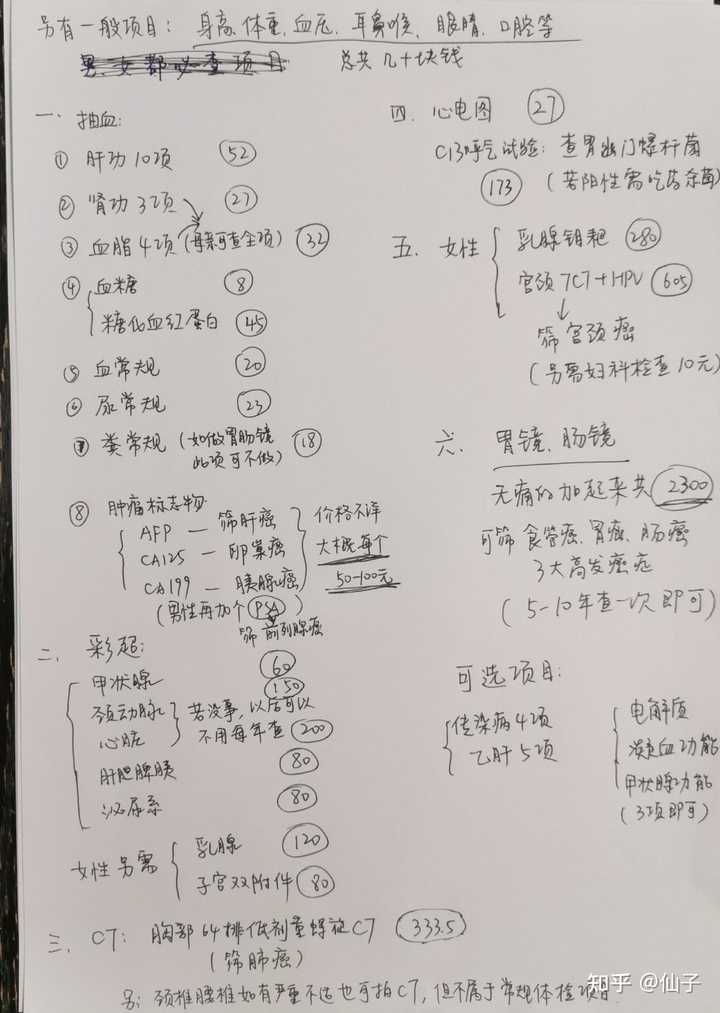 另有一般项目：身高、体重、血压、耳鼻喉、眼睛、口腔等
男、女都必查项目
总共几十块钱
一、抽血：
① 肝功10项 52
② 肾功3项 27
③ 血脂4项（母亲可查全项） 32
④ 血糖 8
糖化血红蛋白 45
⑤ 血常规 20
⑥ 尿常规 23
⑦ 粪常规（如做胃肠镜 18
此项可不做）
⑧ 肿瘤标志物
AFP — 筛肝癌
CA125 — 卵巢癌
CA199 — 胰腺癌
价格不详
大概每个
50-100元
（男性再加个PSA）
筛前列腺癌
二、彩超：
甲状腺 60
颈动脉 150
心脏 200
若没事，以后可以
不用每年查
肝胆脾胰 80
泌尿系 80
女性另需
乳腺 120
子宫双附件 80
三、CT：胸部64排低剂量螺旋CT 333.5
（筛肺癌）
另：颈椎腰椎如有严重不适也可拍CT，但不属于常规体检项目
四、心电图 27
C13呼气试验：查胃幽门螺杆菌
173 （若阳性需吃药杀菌）
五、女性
乳腺钼靶 280
宫颈TCT+HPV 605
筛宫颈癌
（另需妇科检查10元）
六、胃镜、肠镜
无痛的加起来共2300
可筛食管癌、胃癌、肠癌
3大高发癌症
（5-10年查一次即可）
可选项目：
传染病4项
乙肝5项
电解质
凝血功能
甲状腺功能
（3项即可）
知乎 @仙子